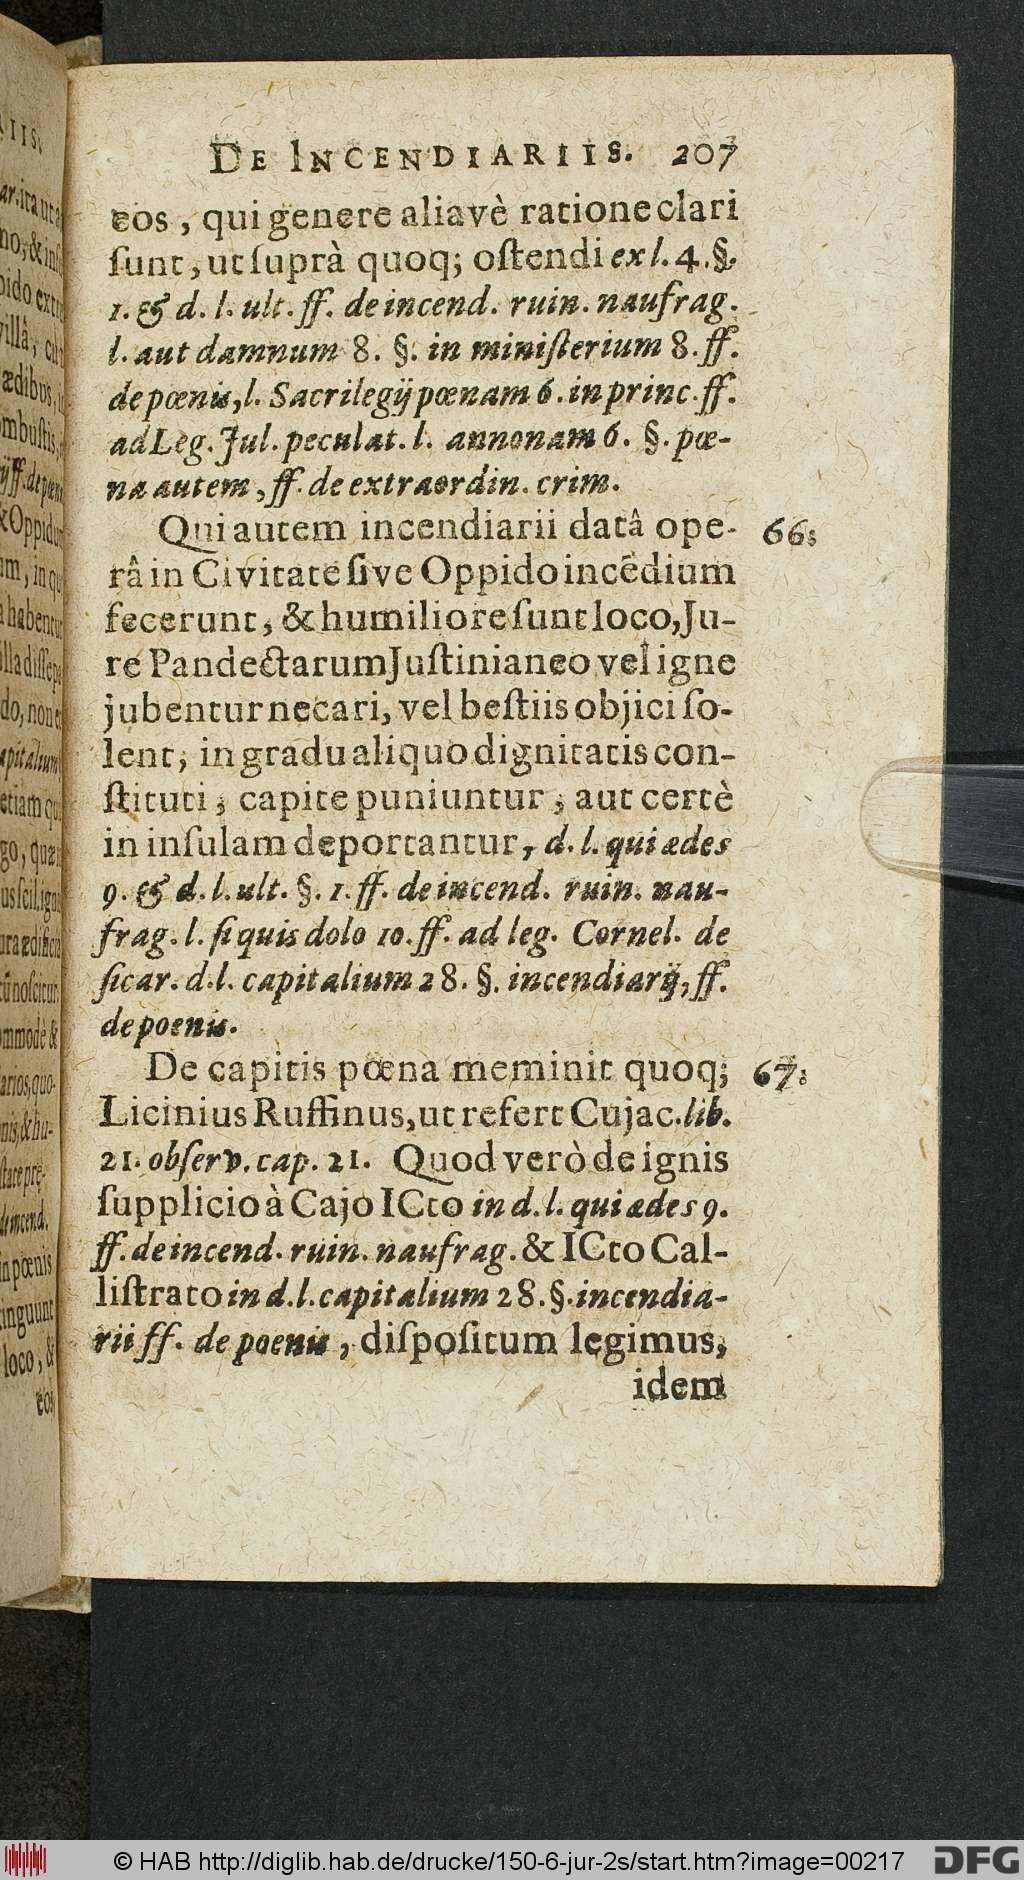 DE INCENDIARIIS. 207
eos, qui genere aliavè ratione clari
ſunt, ut ſuprà quoq; oſtendi ex l. 4. §.
1. & d. l. ult. ff. de incend. ruin. naufrag.
l. aut damnum 8. §. in miniſterium 8. ff.
de pœnis, l. Sacrilegij pœnam 6. in princ. ff.
ad Leg. Jul. peculat. l. annonam 6. §. pœ-
na autem, ff. de extraordin. crim.
Qui autem incendiarii datâ ope- 66.
râ in Civitate ſive Oppido incēdium
fecerunt, & humiliore ſunt loco, Ju-
re Pandectarum Juſtinianeo vel igne
jubentur necari, vel beſtiis objici ſo-
lent, in gradu aliquo dignitatis con-
ſtituti, capite puniuntur, aut certè
in inſulam deportantur, d. l. qui ædes
9. & d. l. ult. §. 1. ff. de incend. ruin. nau-
frag. l. ſi quis dolo 10. ff. ad leg. Cornel. de
ſicar. d. l. capitalium 28. §. incendiarij, ff.
de poenis.
De capitis pœna meminit quoq; 67.
Licinius Ruffinus, ut refert Cujac. lib.
21. obſerv. cap. 21. Quod verò de ignis
ſupplicio à Cajo ICto in d. l. qui ædes 9.
ff. de incend. ruin. naufrag. & ICto Cal-
liſtrato in d. l. capitalium 28. §. incendia-
rii ff. de poenis, diſpoſitum legimus,
idem
© HAB http://diglib.hab.de/drucke/150-6-jur-2s/start.htm?image=00217
DFG